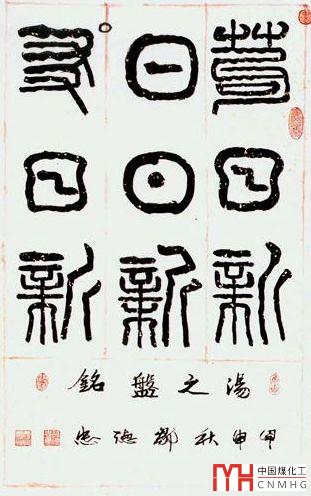 苟日新
日日新
又日新
湯之盤銘
甲申秋鄒德忠
中国煤化工
CNMHG